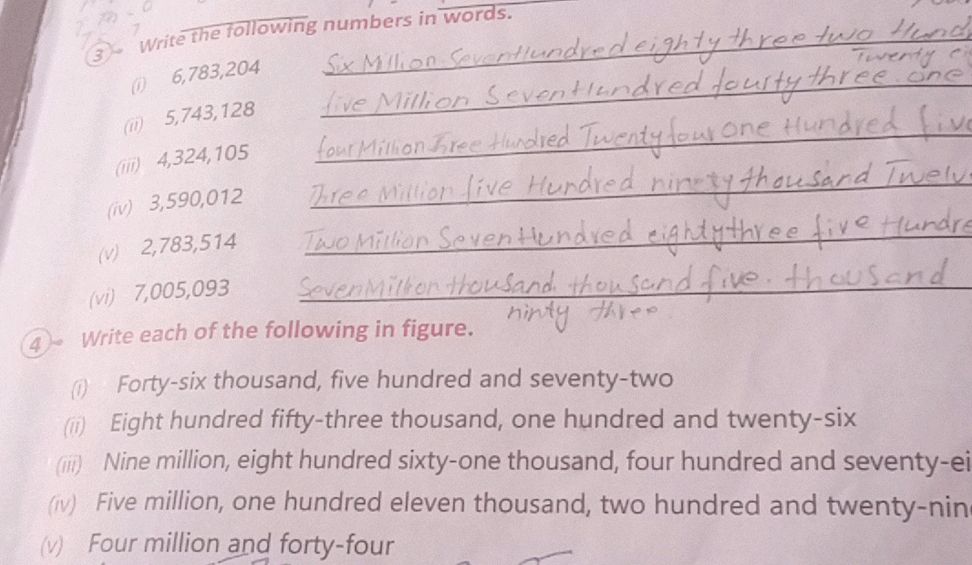 3 Write the following numbers in words.
(i) 6,783,204 Six Million Seven Hundred eighty three two Hund
Twenty ei
(ii) 5,743,128 five Million Seven Hundred fourty three. one
(iii) 4,324,105 four Million Three Hundred Twenty four one Hundred five
(iv) 3,590,012 Three Million five Hundred ninety thousand Twelv
(v) 2,783,514 Two Million Seven Hundred eighty three five Hundre
(vi) 7,005,093 Seven Million thousand. thousand five. thousand
ninty three
4 Write each of the following in figure.
(i) Forty-six thousand, five hundred and seventy-two
(ii) Eight hundred fifty-three thousand, one hundred and twenty-six
(iii) Nine million, eight hundred sixty-one thousand, four hundred and seventy-ei
(iv) Five million, one hundred eleven thousand, two hundred and twenty-nin
(v) Four million and forty-four